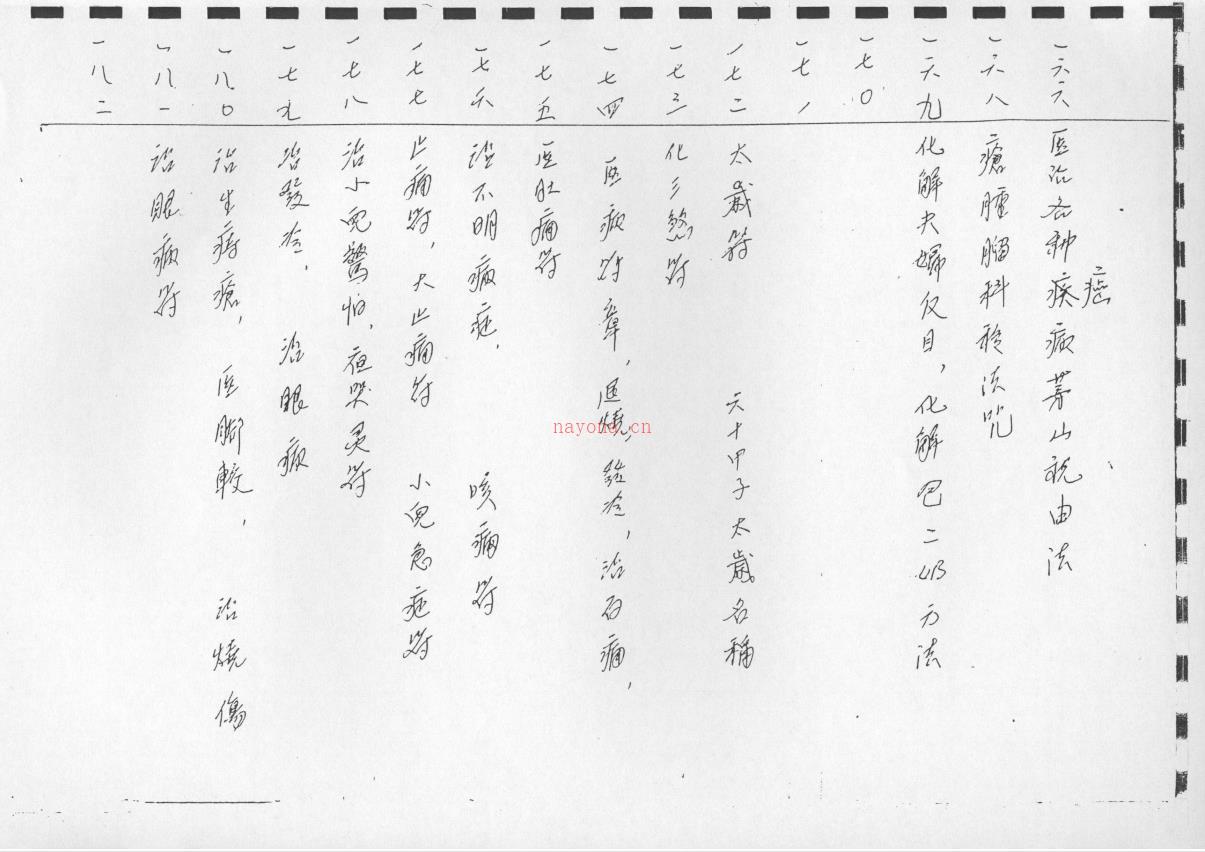 一六六 医治各种疾病茅山祝由法
癌
一六八 瘡腫瘤科秘法咒
一六九 化解夫婦反目,化解 二奶方法
一七0
一七一
一七二 太歲符 六十甲子太歲名稱
一七三 化三煞符
一七四 医病符章,退燒,發冷,治 痛,
一七五 医肚痛符
一七六 治不明病症, 咳病符
一七七 止痛符,大止痛符 小兒急症符
一七八 治小兒驚怕,夜哭灵符
一七九 治發冷, 治眼病
一八0 治生痔瘡, 医脚較, 治燒傷
一八一 治眼病符
一八二
nayona.cn